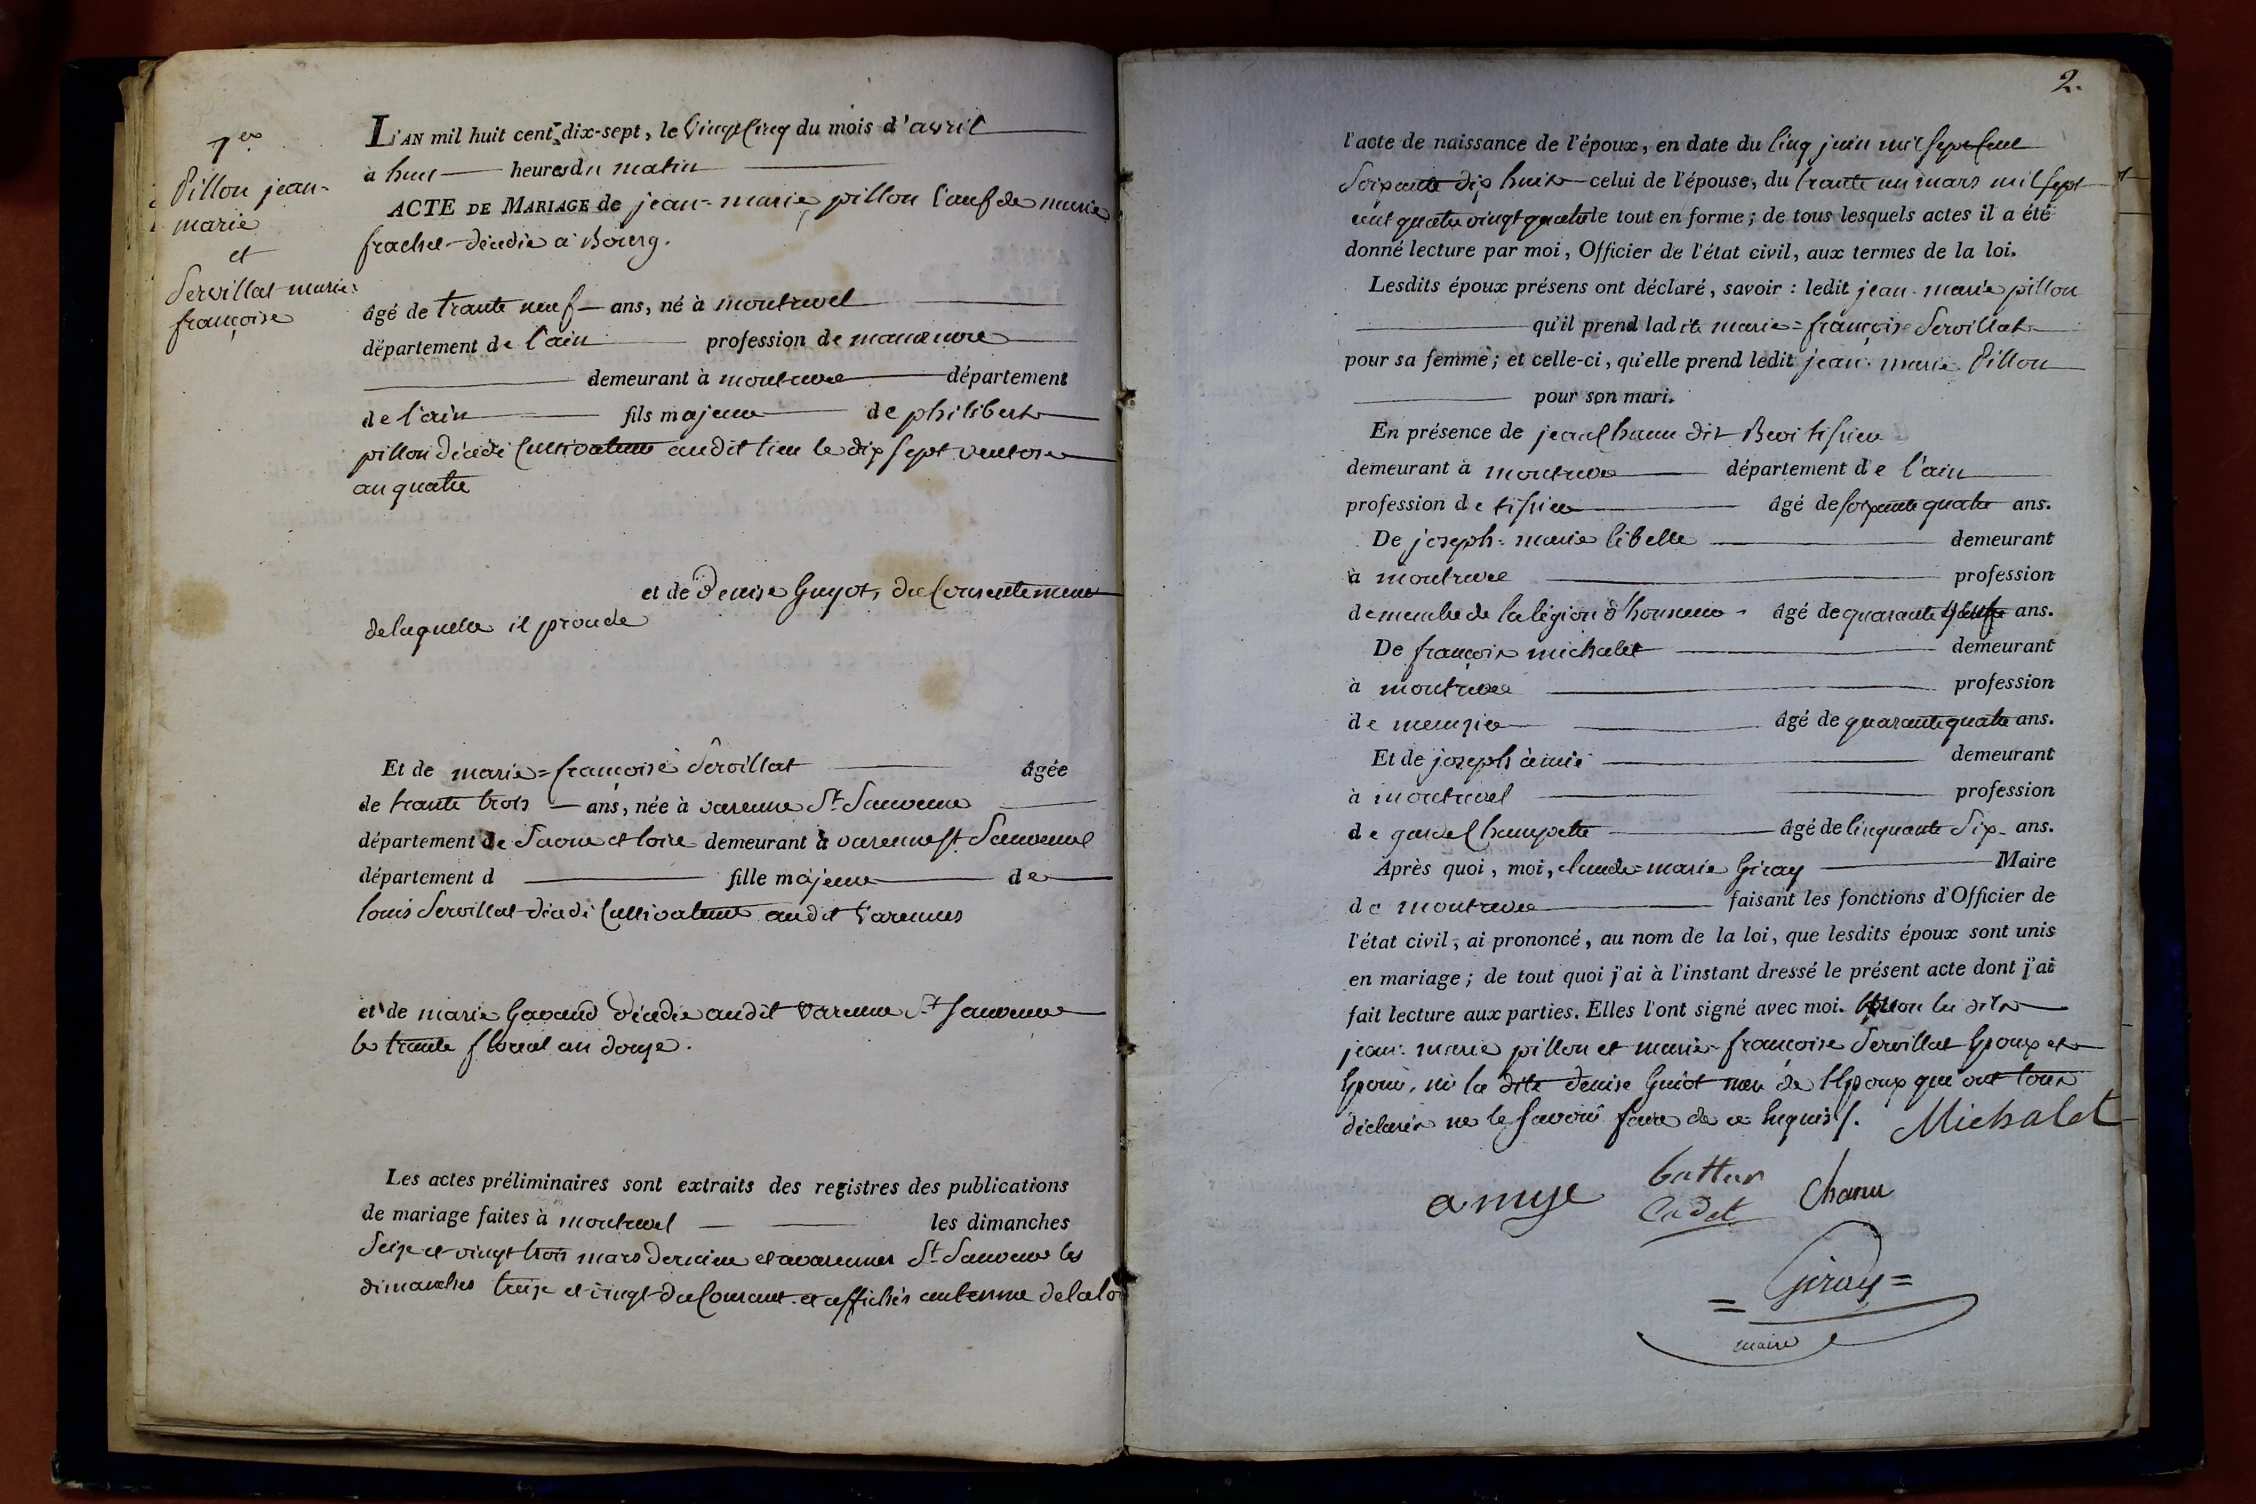 7er
Pillon jean=
marie
et
Servillat marie=
françoise
L'AN mil huit cent dix-sept, le vingt cinq du mois d'avril
à huit heures du matin
ACTE DE MARIAGE de jean=marie pillon veuf de marie
frachet décédée a Bourg.
âgé de trante neuf ans, né à montrevel
département de l'ain profession de manœuvre
demeurant à montrevel département
de l'ain fils majeur de philibert
pillon décédé Cultivateur audit lieu le dix sept ventose
an quatre
et de Denise Guyot, du Consentement
de laquelle il procede
Et de marie=françoise Servillat âgée
de trante trois ans, née à varenne St Sauveur
département de Saone et loire demeurant à varenne St Sauveur
département d fille majeure de
louis Servillat décédé Cultivateur audit Varennes
et de marie Gavand décédée audit Varenne St Sauveur
le trante floreal an douze.
Les actes préliminaires sont extraits des registres des publications
de mariage faites à montrevel les dimanches
Seize et vingt trois mars dernier et a varennes St Sauveur les
dimanches treize et vingt du Courant. et affichés au terme de la loi
2.
l'acte de naissance de l'époux, en date du Cinq juin mil sept Cent
Soixante dix huit celui de l'épouse, du trante un mars mil sept
cent quatre vingt quatre le tout en forme; de tous lesquels actes il a été
donné lecture par moi, Officier de l'état civil, aux termes de la loi.
Lesdits époux présens ont déclaré, savoir : ledit jean=marie pillon
qu'il prend ladite marie=françoise Servillat
pour sa femme; et celle-ci, qu'elle prend ledit jean=marie Pillon
pour son mari.
En présence de jean Chanu dit tisier
demeurant à montrevel département de l'ain
profession de tisier âgé de soixante quatre ans.
De joseph=marie demeurant
à montrevel profession
de membre de la légion d'honneur âgé de quarante ans.
De françois michalet demeurant
à montrevel profession
de âgé de quarante quatre ans.
Et de joseph demeurant
à montrevel profession
de garde Champetre âgé de Cinquante Six ans.
Après quoi, moi, claude=marie Giray Maire
de montrevel faisant les fonctions d'Officier de
l'état civil, ai prononcé, au nom de la loi, que lesdits époux sont unis
en mariage; de tout quoi j'ai à l'instant dressé le présent acte dont j'ai
fait lecture aux parties. Elles l'ont signé avec moi. Non les dits
jean=marie pillon et marie=françoise Servillat Epoux et
Epouse, ni la dite denise Guiot mere de l'Epoux qui ont tous
déclarés ne le savoir faire de ce Enquis/.
Michalet
amye
Cadet
Chanu
= Giray =
maire